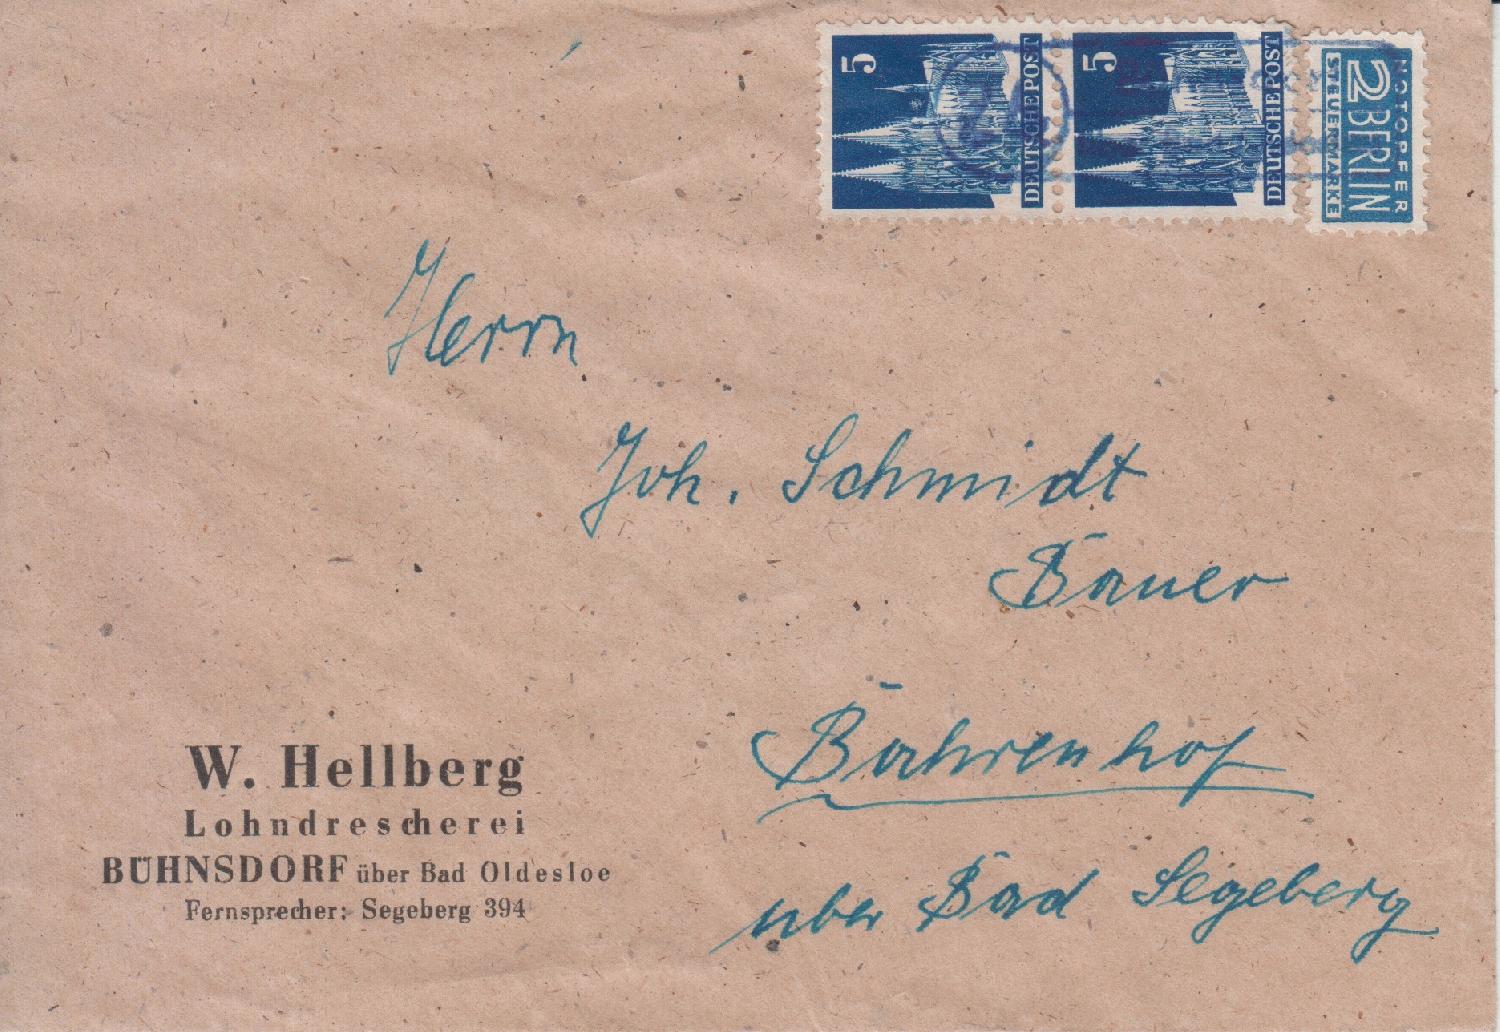 5
DEUTSCHE POST
5
DEUTSCHE POST
NOTOPFER
2 BERLIN
STEUERMARKE
Herrn
Joh. Schmidt
Bauer
Bahrenhof
über Bad Segeberg
W. Hellberg
Lohndrescherei
BÜHNSDORF über Bad Oldesloe
Fernsprecher: Segeberg 394